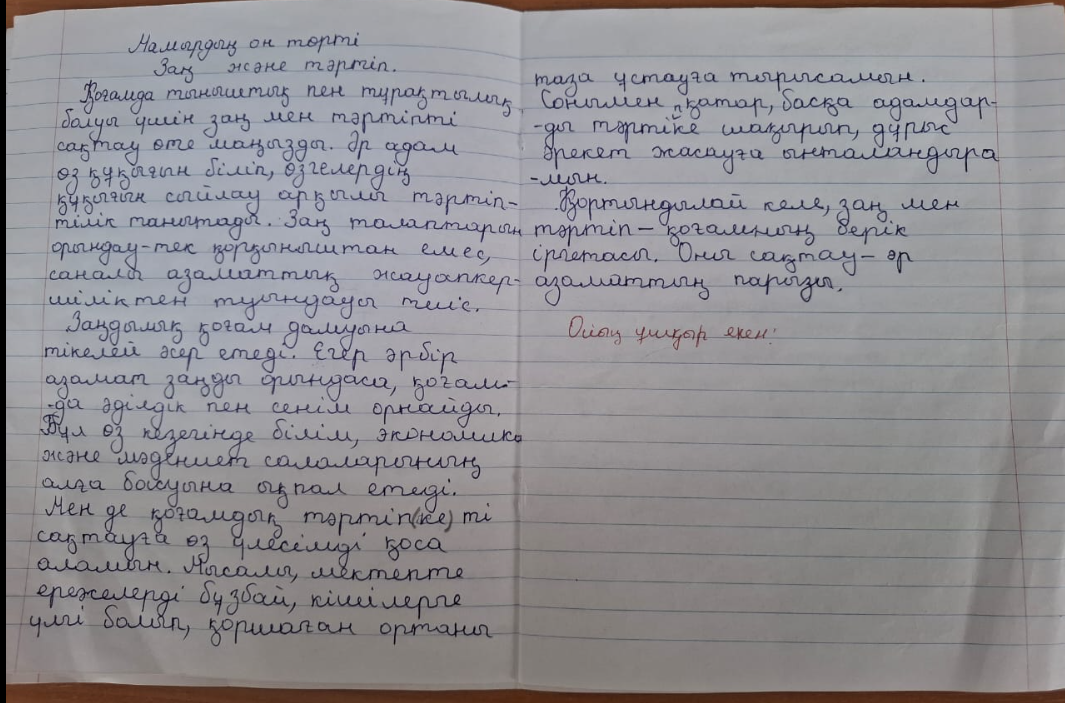 Мамырдың он төрті
Заң және тәртіп.
Қоғамда тыныштық пен тұрақтылық
болуы үшін заң мен тәртіпті
сақтау өте маңызды. Әр адам
өз құқығын біліп, өзгелердің
құқығын сыйлау арқылы тәртіп-
тілік танытады. Заң талаптарын
орындау-тек қорқыныштан емес,
саналы азаматтық жауапкер-
шіліктен туындауы тиіс.
Заңдылық қоғам дамуына
тікелей әсер етеді. Егер әрбір
азамат заңды орындаса, қоғам-
-да әділдік пен сенім орнайды.
Бұл өз кезегінде білім, экономика
және мәдениет салаларының
алға басуына ықпал етеді.
Мен де қоғамдық тәртіп(ке) ті
сақтауға өз үлесімді қоса
аламын. Мысалы, мектепте
ережелерді бұзбай, кішілерге
үлгі болып, қоршаған ортаны
таза ұстауға тырысамын.
Сонымен қатар, басқа адамдар-
-ды тәртіпке шақырып, дұрыс
әрекет жасауға ынталандыра
-мын.
Қортындылай келе, заң мен
тәртіп – қоғамның берік
іргетасы. Оны сақтау – әр
азаматтың парызы.
Ойың ұшқыр екен!